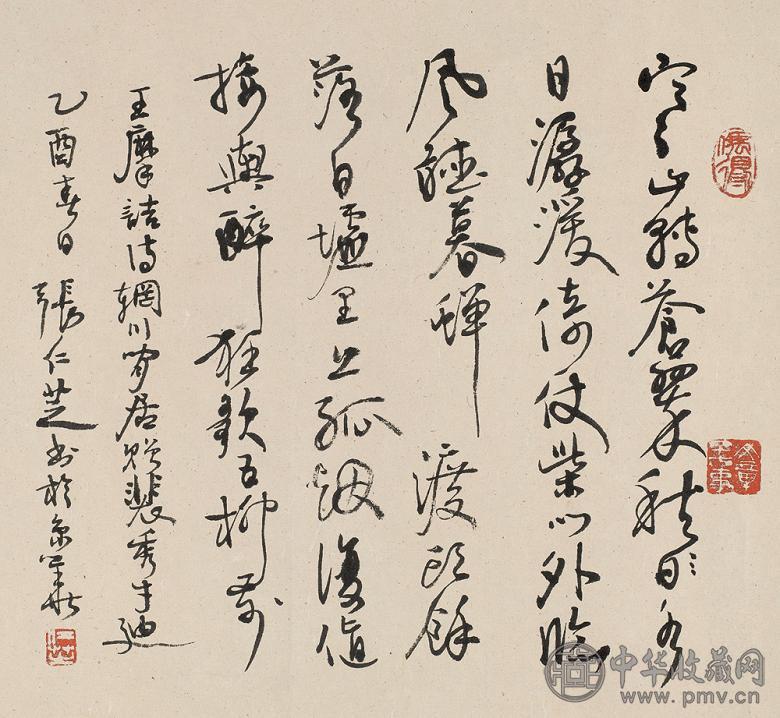 寒山轉蒼翠秋日水
日潺湲倚仗柴門外臨
風聽暮蟬渡頭餘
落日墟里上孤烟復值
接輿醉狂歌五柳前
王摩詰詩輞川閒居贈裴秀才迪
乙酉春日張仁芝書於京
中华收藏网
www.pmv.cn